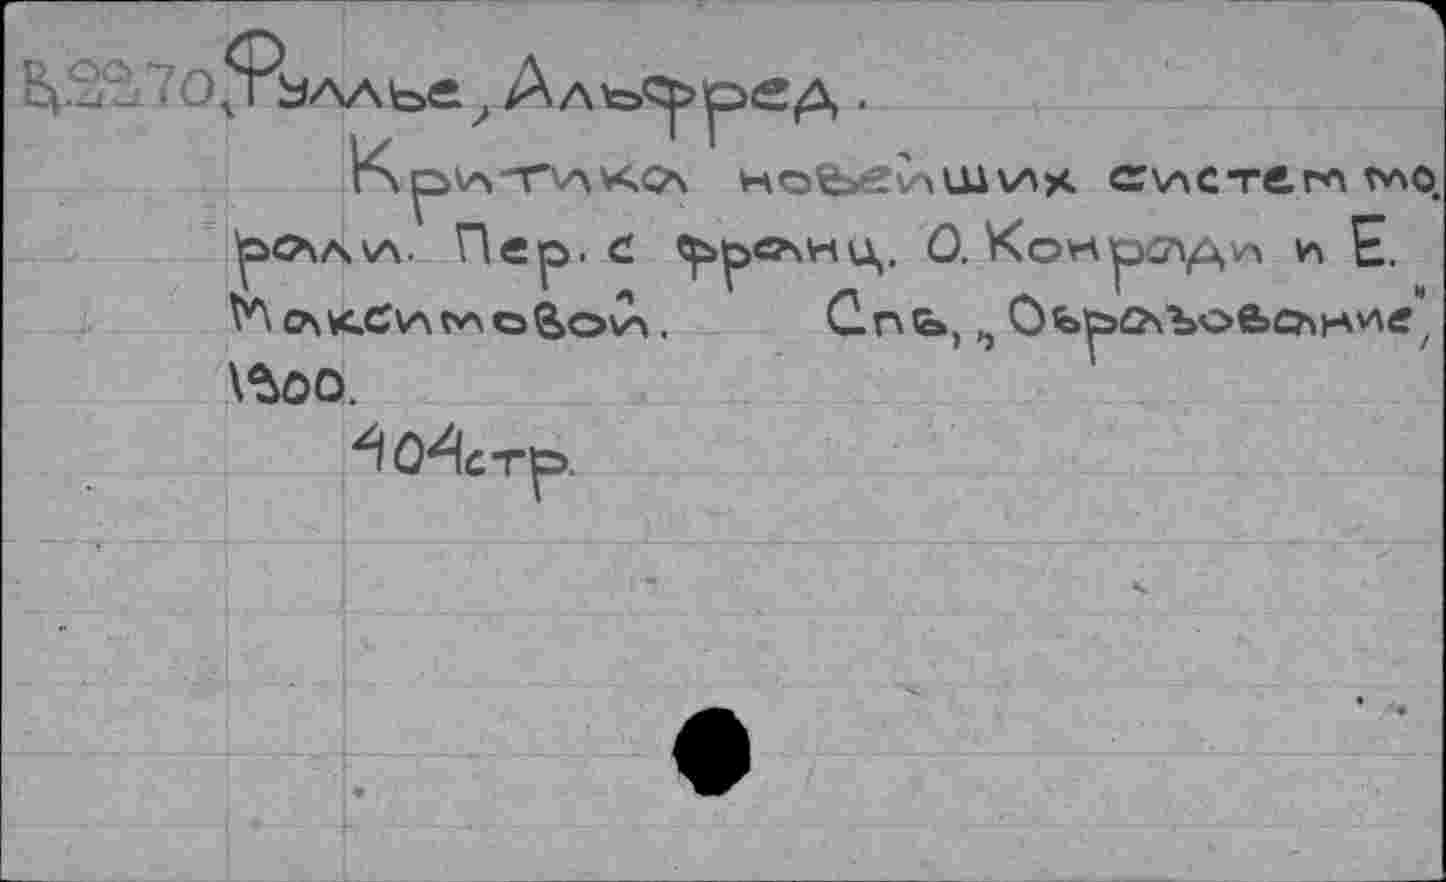 Ц.22270 Фуллье, Альфред.
Критика новейших систем мо
рали. Пер. с франц. О. Конради и Е.
Максимовой. Спб, „Образование",
1900.
404стр.